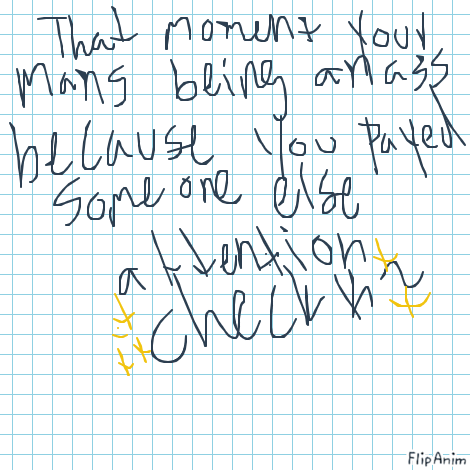 That moment your
mans being an ass
because you payed
someone else
attention
check
FlipAnim